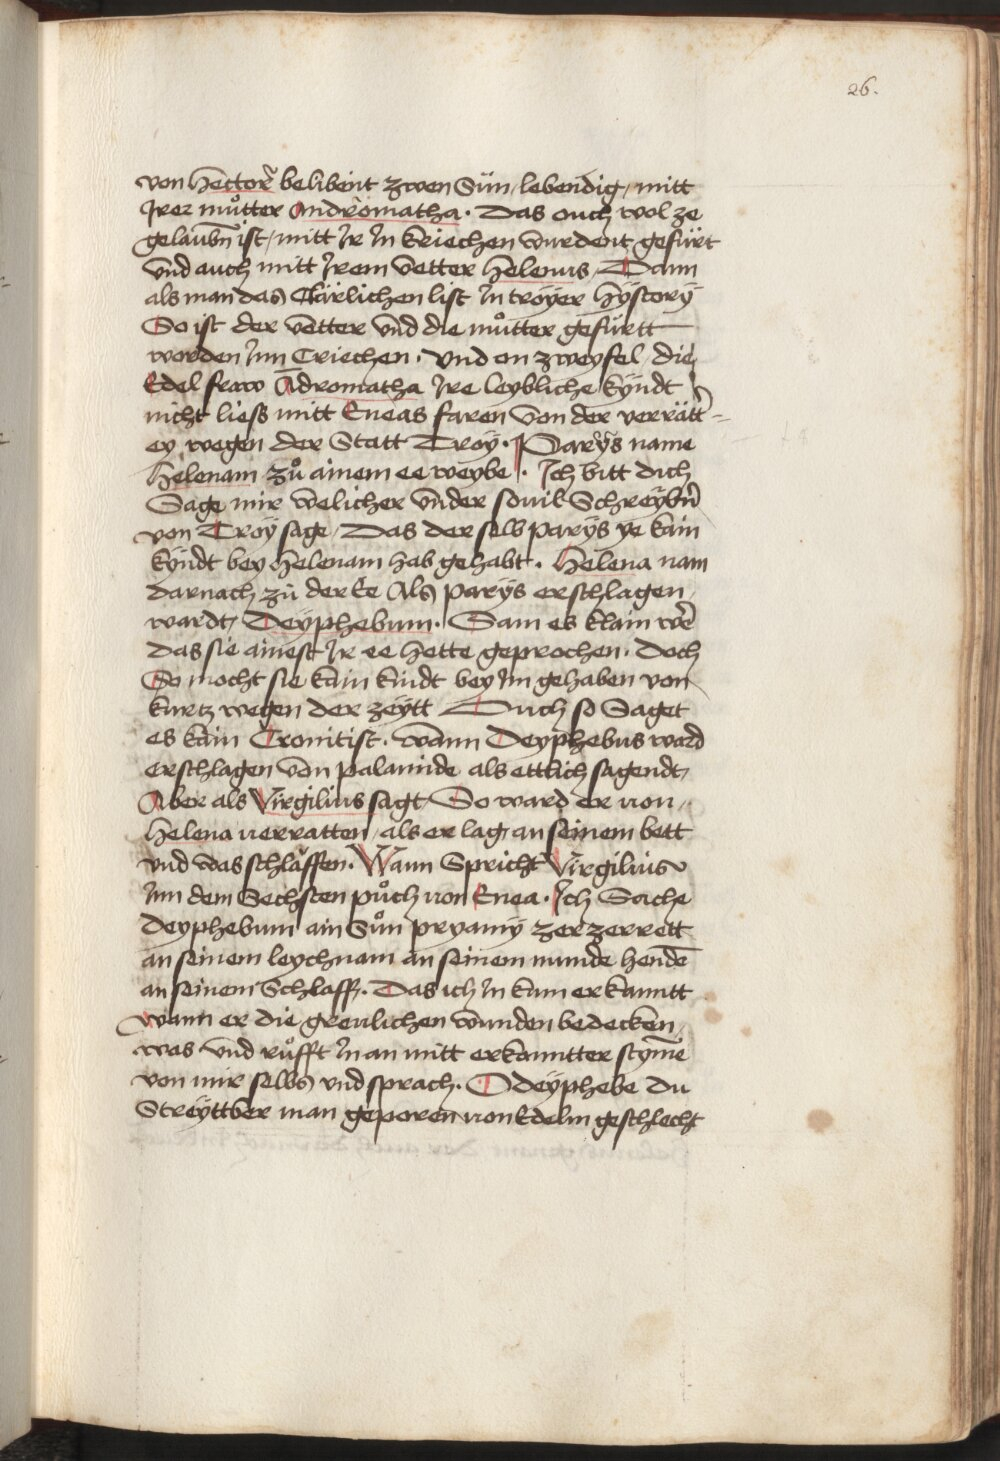 26.
von Hector̃ belibent zwen Sün / lebendig / mitt
Irer můtter Andromatha · Das ouch wol ze
gelaubñ ist / mitt Ir In kriechen wurdent gefürt
vnd auch mitt Irem vetter Helenus / Dann
als man das Clärlichen list In troyer hystory
So ist der vetter vnd die můtter gefürtt
worden Inn Criechen · vnd on zweyfel die
Edel fraw Ādromatha Ire leybliche kyndt
nicht liess mitt Eneas faren von der verrätt-
ey wegen der Statt Troy · Parys name
Helenam zů ainem ee weybe · Ich bitt dich
Sage mir welicher vnder souil Schreybñ
von Troy sage / Das der selb parys ye kain
kyndt bey Helenam hab gehabt · Helena nam
darnach zů der Ee Als parys erschlagen
wardt / Deyphebum · Sam es klain wer̃
das sie ainest Ir ee hette geprochen · Doch
So mocht sie kain kindt bey Im gehaben von
kurtz wegen der zeytt Ouch so Saget
es kain Cronitist · wann Deyphebus ward
erschlagen von palamide als ettlich sagendt /
Aber als Virgilius sagt / So ward er von
Helena verratten / als er lag an seinem bett
vnd was schlaffen · Wann Spricht Virgilius
Inn dem Sechsten půch von Enea · Ich Sache
Deyphebum ain Sůn pryamy zerzerrett
an seinem leychnam an seinem munde hendē
an seinem Schlaff · Das ich In kum erkanntt
wann er die greulichen wunden bedecken
was vnd růfft In an mitt erkanntter stym̄e
von mir selbs vnd sprach · O deyphebe du
Streyttber man geporen von Edelm geschlecht